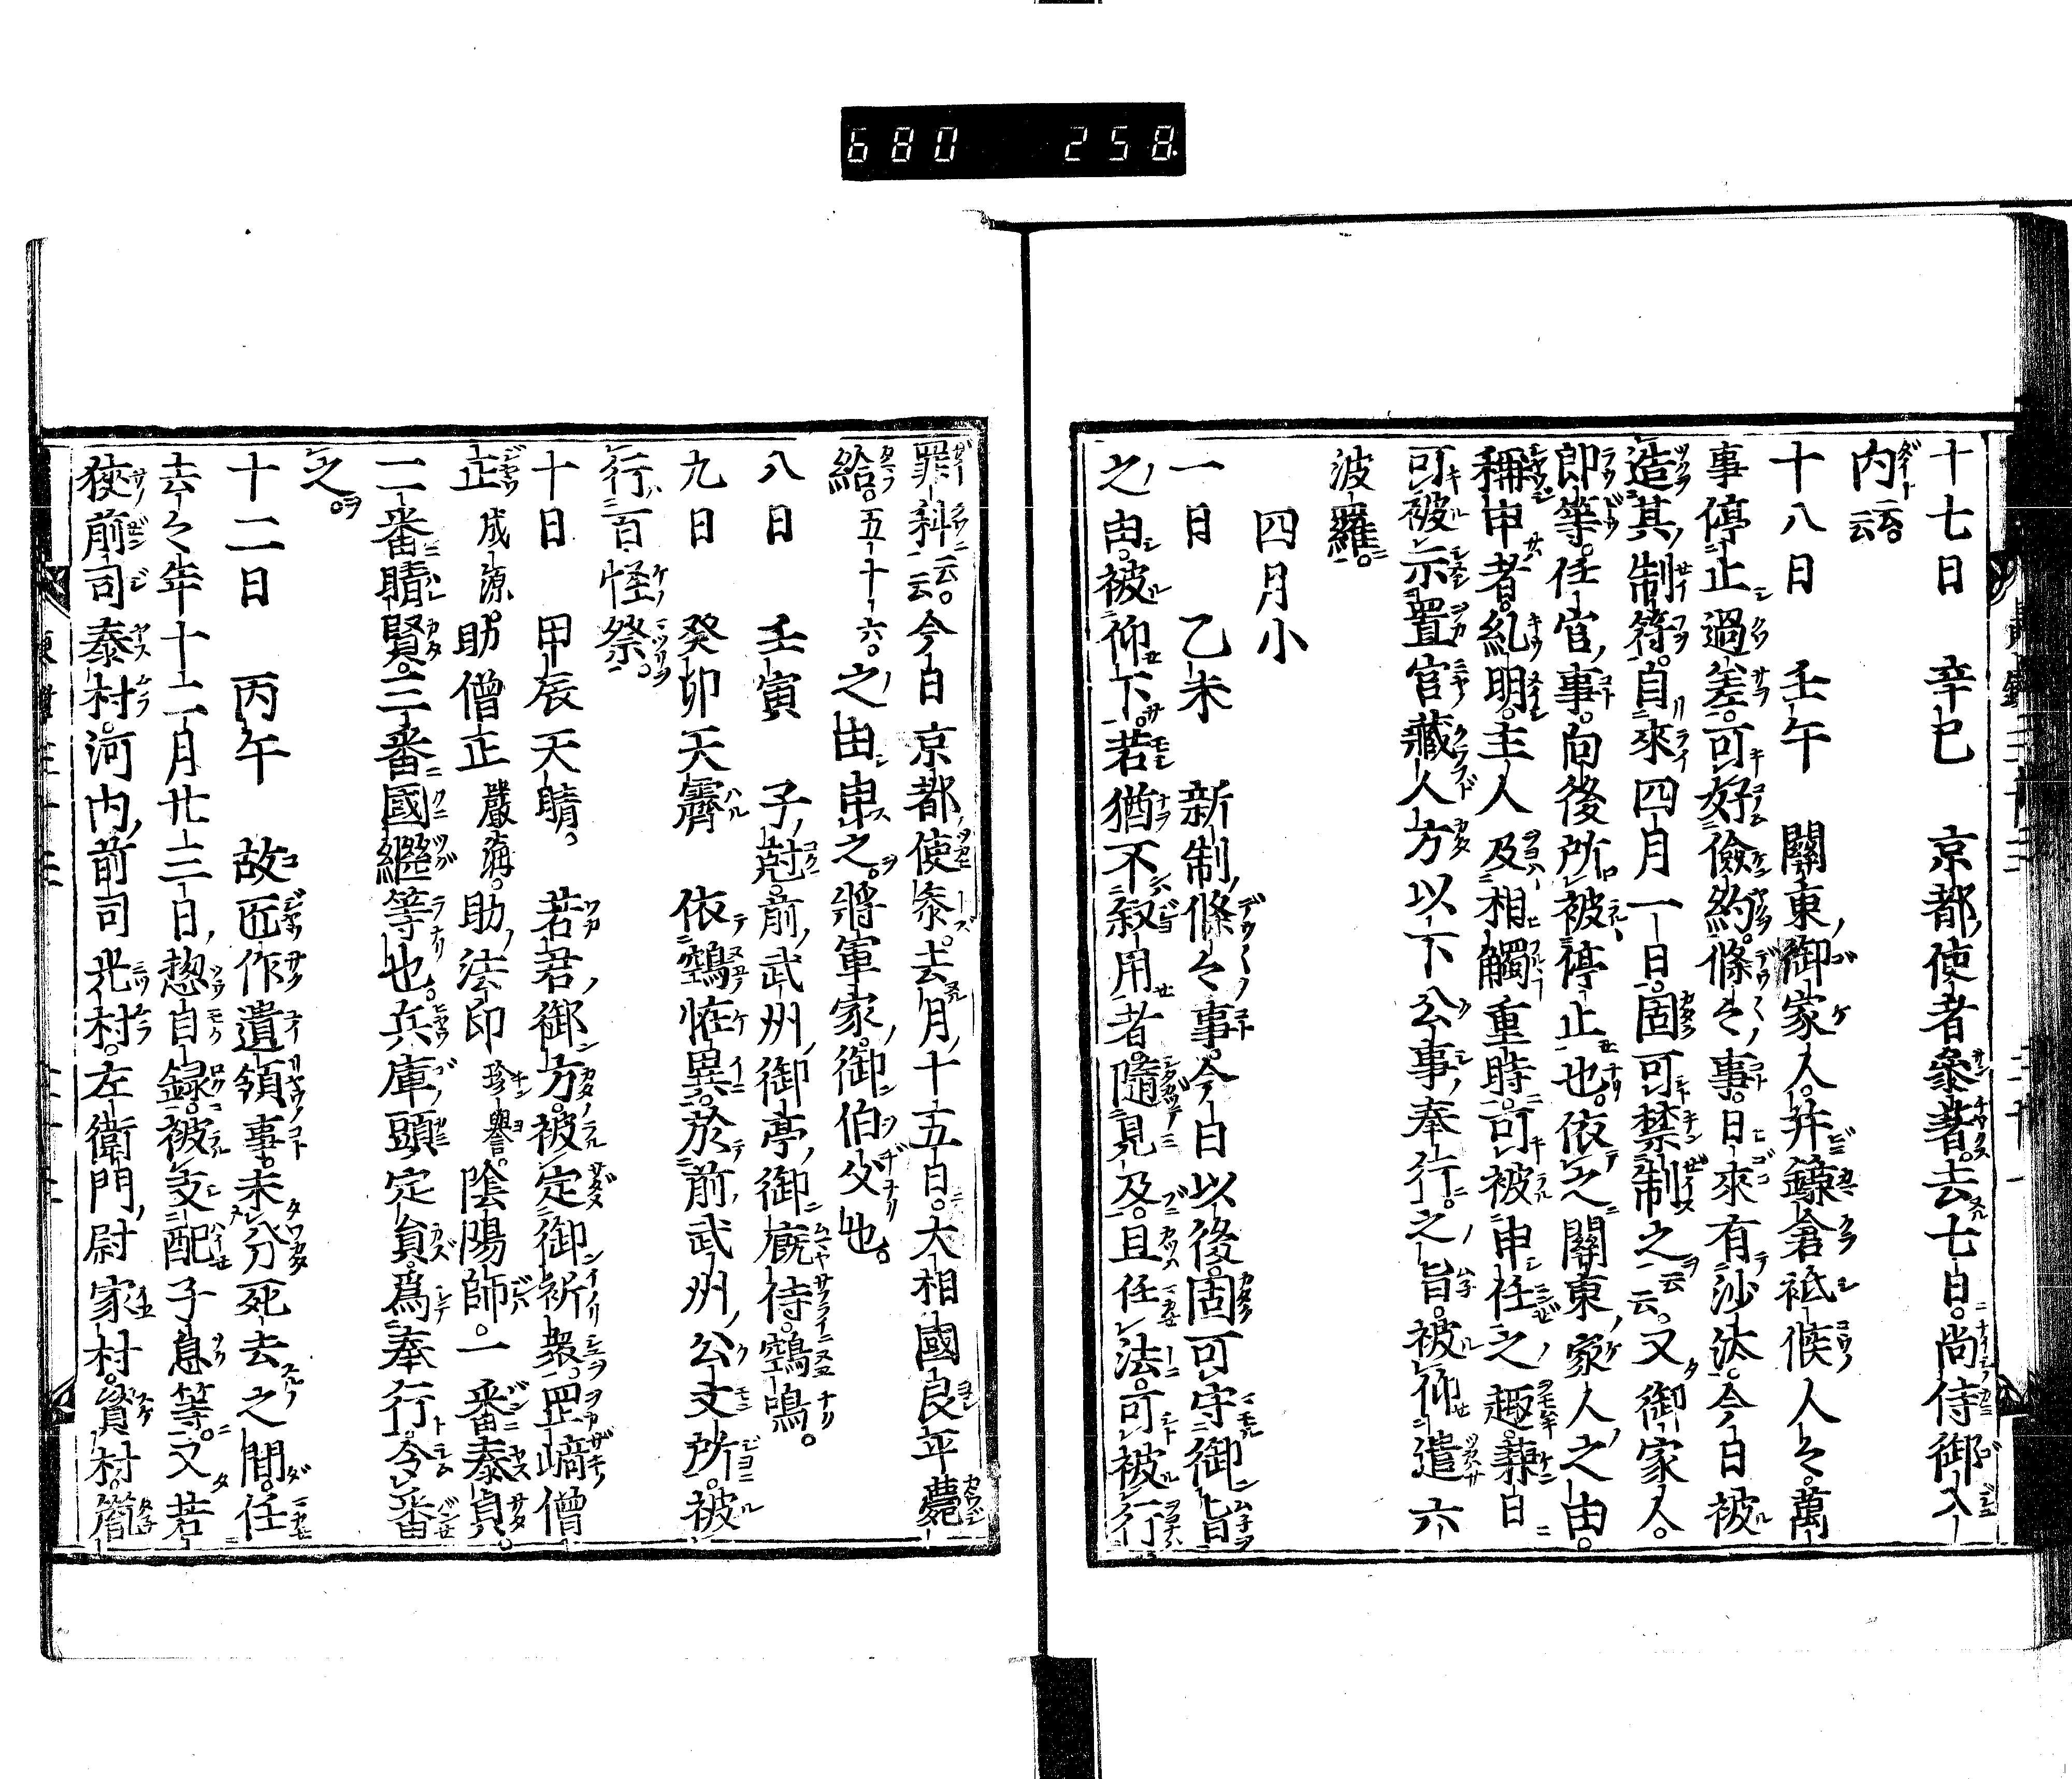 680 258
十七日 辛巳 京都使者參著。去七日。尚侍御入
内云云。
十八日 壬午 關東御家人。并鎌倉祗候人々。萬
事停止過差。可好儉約。條々事。日來有沙汰。今日被
造其制符。自來四月一日。固可禁制之云云。又御家人。
郎等。任官事。向後所被停止也。依之關東家人之由。
稱申者。糺明。主人及相觸重時。可被申任之趣。兼日
可被示置官藏人方以下公事奉行。之旨。被仰遣六
波羅。
四月小
一日 乙未 新制條々事。今日以後。固可守御旨
之由。被仰下。若猶不叙用者。隨見及。且任法。可被行
罪科云云。今日京都使參。去月十五日。大相國良平薨
給。五十六。之由申之。將軍家御伯父也。
八日 壬寅 子尅。前武州御亭御厩侍。鵼鳴。
九日 癸卯天霽 依鵼恠異。於前武州公文所。被
行百怪祭。
十日 甲辰天晴。 若君御方。被定御祈衆。罡﨑僧
正成源。助僧正嚴海。助法印珍譽。陰陽師。一番泰貞。
二番晴賢。三番國繼等也。兵庫頭定員。爲奉行。令番
之。
十二日 丙午 故匠作遺領事。未分死去之間。任
去々年十二月廿三日惣目録。被支配子息等。又若
狹前司泰村。河内前司光村。左衛門尉家村。資村。